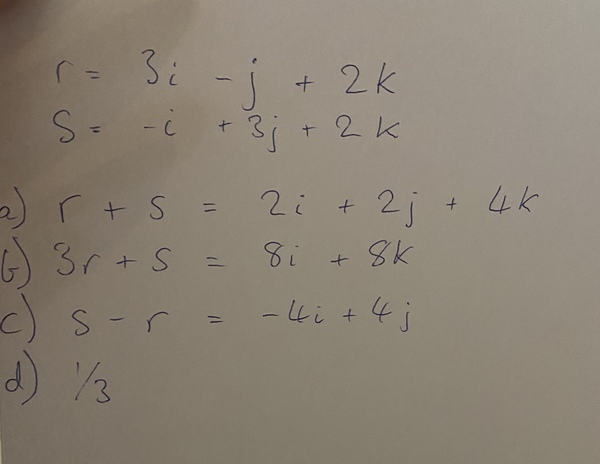 r = 3i - j + 2k
S = -i + 3j + 2k
a) r + s = 2i + 2j + 4k
b) 3r + s = 8i + 8k
c) s - r = -4i + 4j
d) 1/3